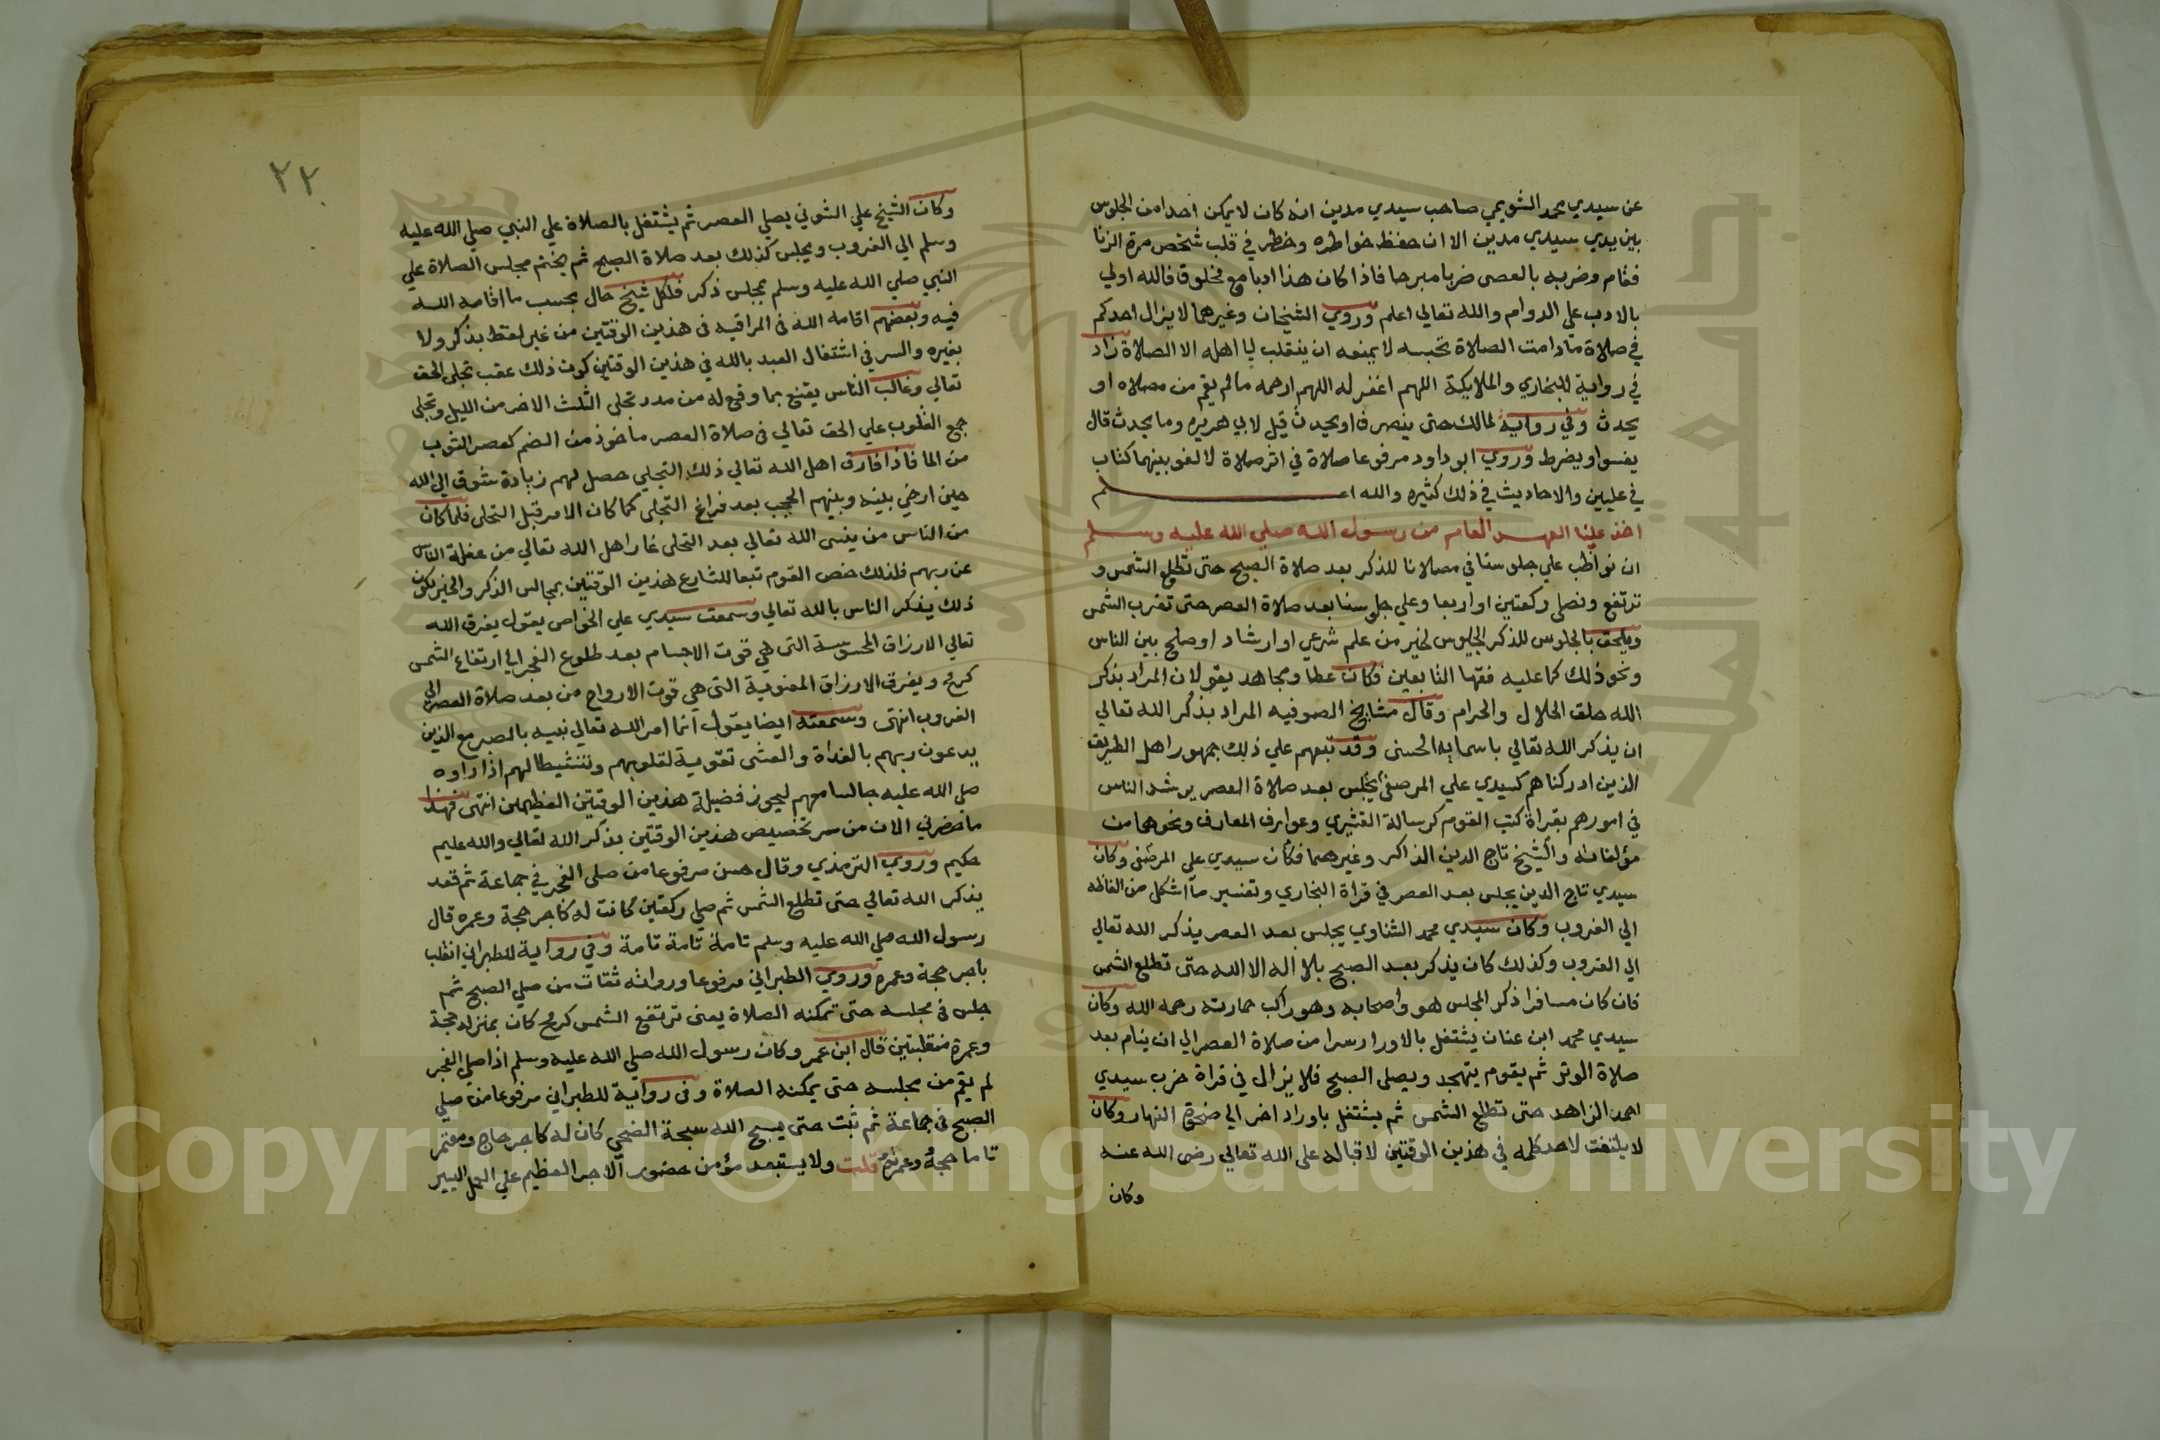 عن سيدي محمد الشويمي صاحب سيدي مدين انه كان لا يمكن احدا من الجلوس
بين يدي سيدي مدين الا ان حفظ خواطره وخطر في قلب شخص مرة الزنا
فقام وضربه بالعصى ضربا مبرحا فاذا كان هذا ادبا مع مخلوق فالله اولي
بالادب علي الدوام والله تعالي اعلم وروي الشيخان وغيرهما لا يزال احدكم
في صلاة ما دامت الصلاة تحبسه لا يمنعه ان ينقلب الي اهله الا الصلاة زاد
في رواية للبخاري والملايكة اللهم اغفر له اللهم ارحمه ما لم يقم من مصلاه او
يحدث وفي رواية لمالك حتى ينصرف او يحدث قيل لابي هريره وما يحدث قال
يفسوا ويضرط وروي ابو داود مرفوعا صلاة في اثر صلاة لا لغو بينهما كتاب
في عليين والاحاديث في ذلك كثيره والله اعلم
اخذ علينا العهد العام من رسول الله صلي الله عليه وسلم
ان نواظب علي جلوسنا في مصلانا للذكر بعد صلاة الصبح حتى تطلع الشمس و
ترتفع ونصلي ركعتين او اربعا وعلي جلوسنا بعد صلاة العصر حتى تغرب الشمس
ويلحق بالجلوس للذكر الجلوس لخير من علم شرعي او ارشاد او صلح بين الناس
ونحو ذلك كما عليه فقها التابعين فكان عطا ومجاهد يقولان المراد بذكر
الله حلق الحلال والحرام وقال مشايخ الصوفيه المراد بذكر الله تعالي
ان يذكر الله تعالي باسمايه الحسنى وقد تبعهم علي ذلك جمهور اهل الطريق
الذين ادركناهم كسيدي علي المرصفي يجلس بعد صلاة العصر يرشد الناس
في امورهم بقراة كتب القوم كرسالة القشيري وعوارف المعارف ونحوهما من
مؤلفاته والشيخ تاج الدين الذاكر وغيرهما فكان سيدي علي المرصفي وكان
سيدي تاج الدين يجلس بعد العصر في قراة البخاري وتفسير ما اشكل من الفاظه
الي الغروب وكان سيدي محمد الشناوي يجلس بعد العصر يذكر الله تعالي
الي الغروب وكذلك كان يذكر بعد الصبح بلا اله الا الله حتى تطلع الشمس
فان كان مسافرا ذكر المجلس هو واصحابه وهو راكب حمارته رحمه الله وكان
سيدي محمد ابن عنان يشتغل بالاوراد سرا من صلاة العصر الي ان ينام بعد
صلاة الوتر ثم يقوم يتهجد ويصلي الصبح فلا يزال في قراة حزب سيدي
احمد الزاهد حتى تطلع الشمس ثم يشتغل باوراد اخر الي ضحوة النهار وكان
لا يلتفت لاحد كلمه في هذين الوقتين لاقباله على الله تعالي رضي الله عنه
وكان
٢٢
وكان الشيخ علي الشوني يصلي العصر ثم يشتغل بالصلاة علي النبي صلي الله عليه
وسلم الي الغروب ويجلس كذلك بعد صلاة الصبح ثم يختم مجلس الصلاة علي
النبي صلي الله عليه وسلم بمجلس ذكر فلكل شيخ حال بحسب ما اقامه الله
فيه وبعضهم اقامه الله في المراقبه في هذين الوقتين من غير لفظ بذكر ولا
بغيره والسر في اشتغال العبد بالله في هذين الوقتين كون ذلك عقب تجلى الحق
تعالي وغالب الناس يقنع بما وقع له من مدد تجلى الثلث الاخر من الليل وتجلى
جمع القلوب علي الحق تعالي في صلاة العصر ماخوذ من الضم كعصر الثوب
من الما فاذا فارق اهل الله تعالي ذلك التجلي حصل لهم زيادة شوق الي الله
حين ارخي بينه وبينهم الحجب بعد فراغ التجلي كما كان الامر قبل التجلي فلما كان
من الناس من ينسى الله تعالي بعد التجلي غار اهل الله تعالي من غفلة الناس
عن ربهم فلذلك خص القوم تبعا للشارع هذين الوقتين بمجالس الذكر والخير لكون
ذلك يذكر الناس بالله تعالي وسمعت سيدي علي الخواص يقول يفرق الله
تعالي الارزاق المحسوسة التي هي قوت الاجسام بعد طلوع الفجر الي ارتفاع الشمس
كرمح ويفرق الارزاق المعنوية التي هي قوت الارواح من بعد صلاة العصر الي
الغروب انتهى وسمعته ايضا يقول انما امر الله تعالي نبيه بالصبر مع الذين
يدعون ربهم بالغداة والعشى تقوية لقلوبهم وتنشيطا لهم اذا راوه
صلي الله عليه جالسا معهم ليحوز فضيلة هذين الوقتين العظيمين انتهى فهذا
ما حضرني الان من سر تخصيص هذين الوقتين بذكر الله تعالي والله عليم
حكيم وروي الترمذي وقال حسن مرفوعا من صلى الفجر في جماعة ثم قعد
يذكر الله تعالي حتى تطلع الشمس ثم صلي ركعتين كانت له كاجر حجة وعمره قال
رسول الله صلي الله عليه وسلم تامة تامة تامة وفي رواية للطبراني انقلب
باجر حجة وعمره وروي الطبراني مرفوعا ورواته ثقات من صلي الصبح ثم
جلس في مجلسه حتى تمكنه الصلاة يعني ترتفع الشمس كرمح كان بمنزله حجة
وعمرة متقبلتين قال ابن عمر وكان رسول الله صلي الله عليه وسلم اذا صلي الفجر
لم يقم من مجلسه حتى يمكنه الصلاة وفي رواية للطبراني مرفوعا من صلي
الصبح في جماعة ثم ثبت حتى يسبح الله سبحة الضحي كان له كاجر حاج ومعتمر
تاما حجه وعمرته قلت ولا يستبعد مؤمن حضور الاجر العظيم علي العمل اليسير
Copyright © King Saud University